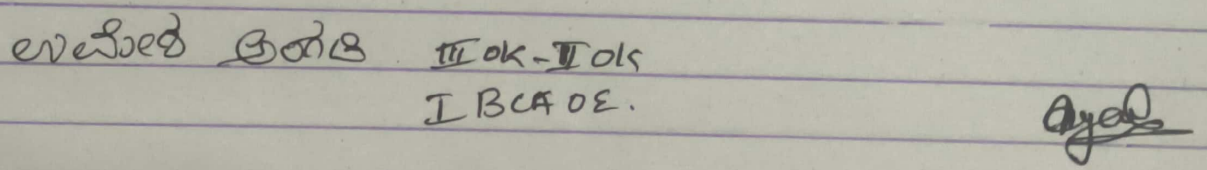 ಉಮೇಶ ಅಂಗಡಿ III OK-II OK
I BCA OE.